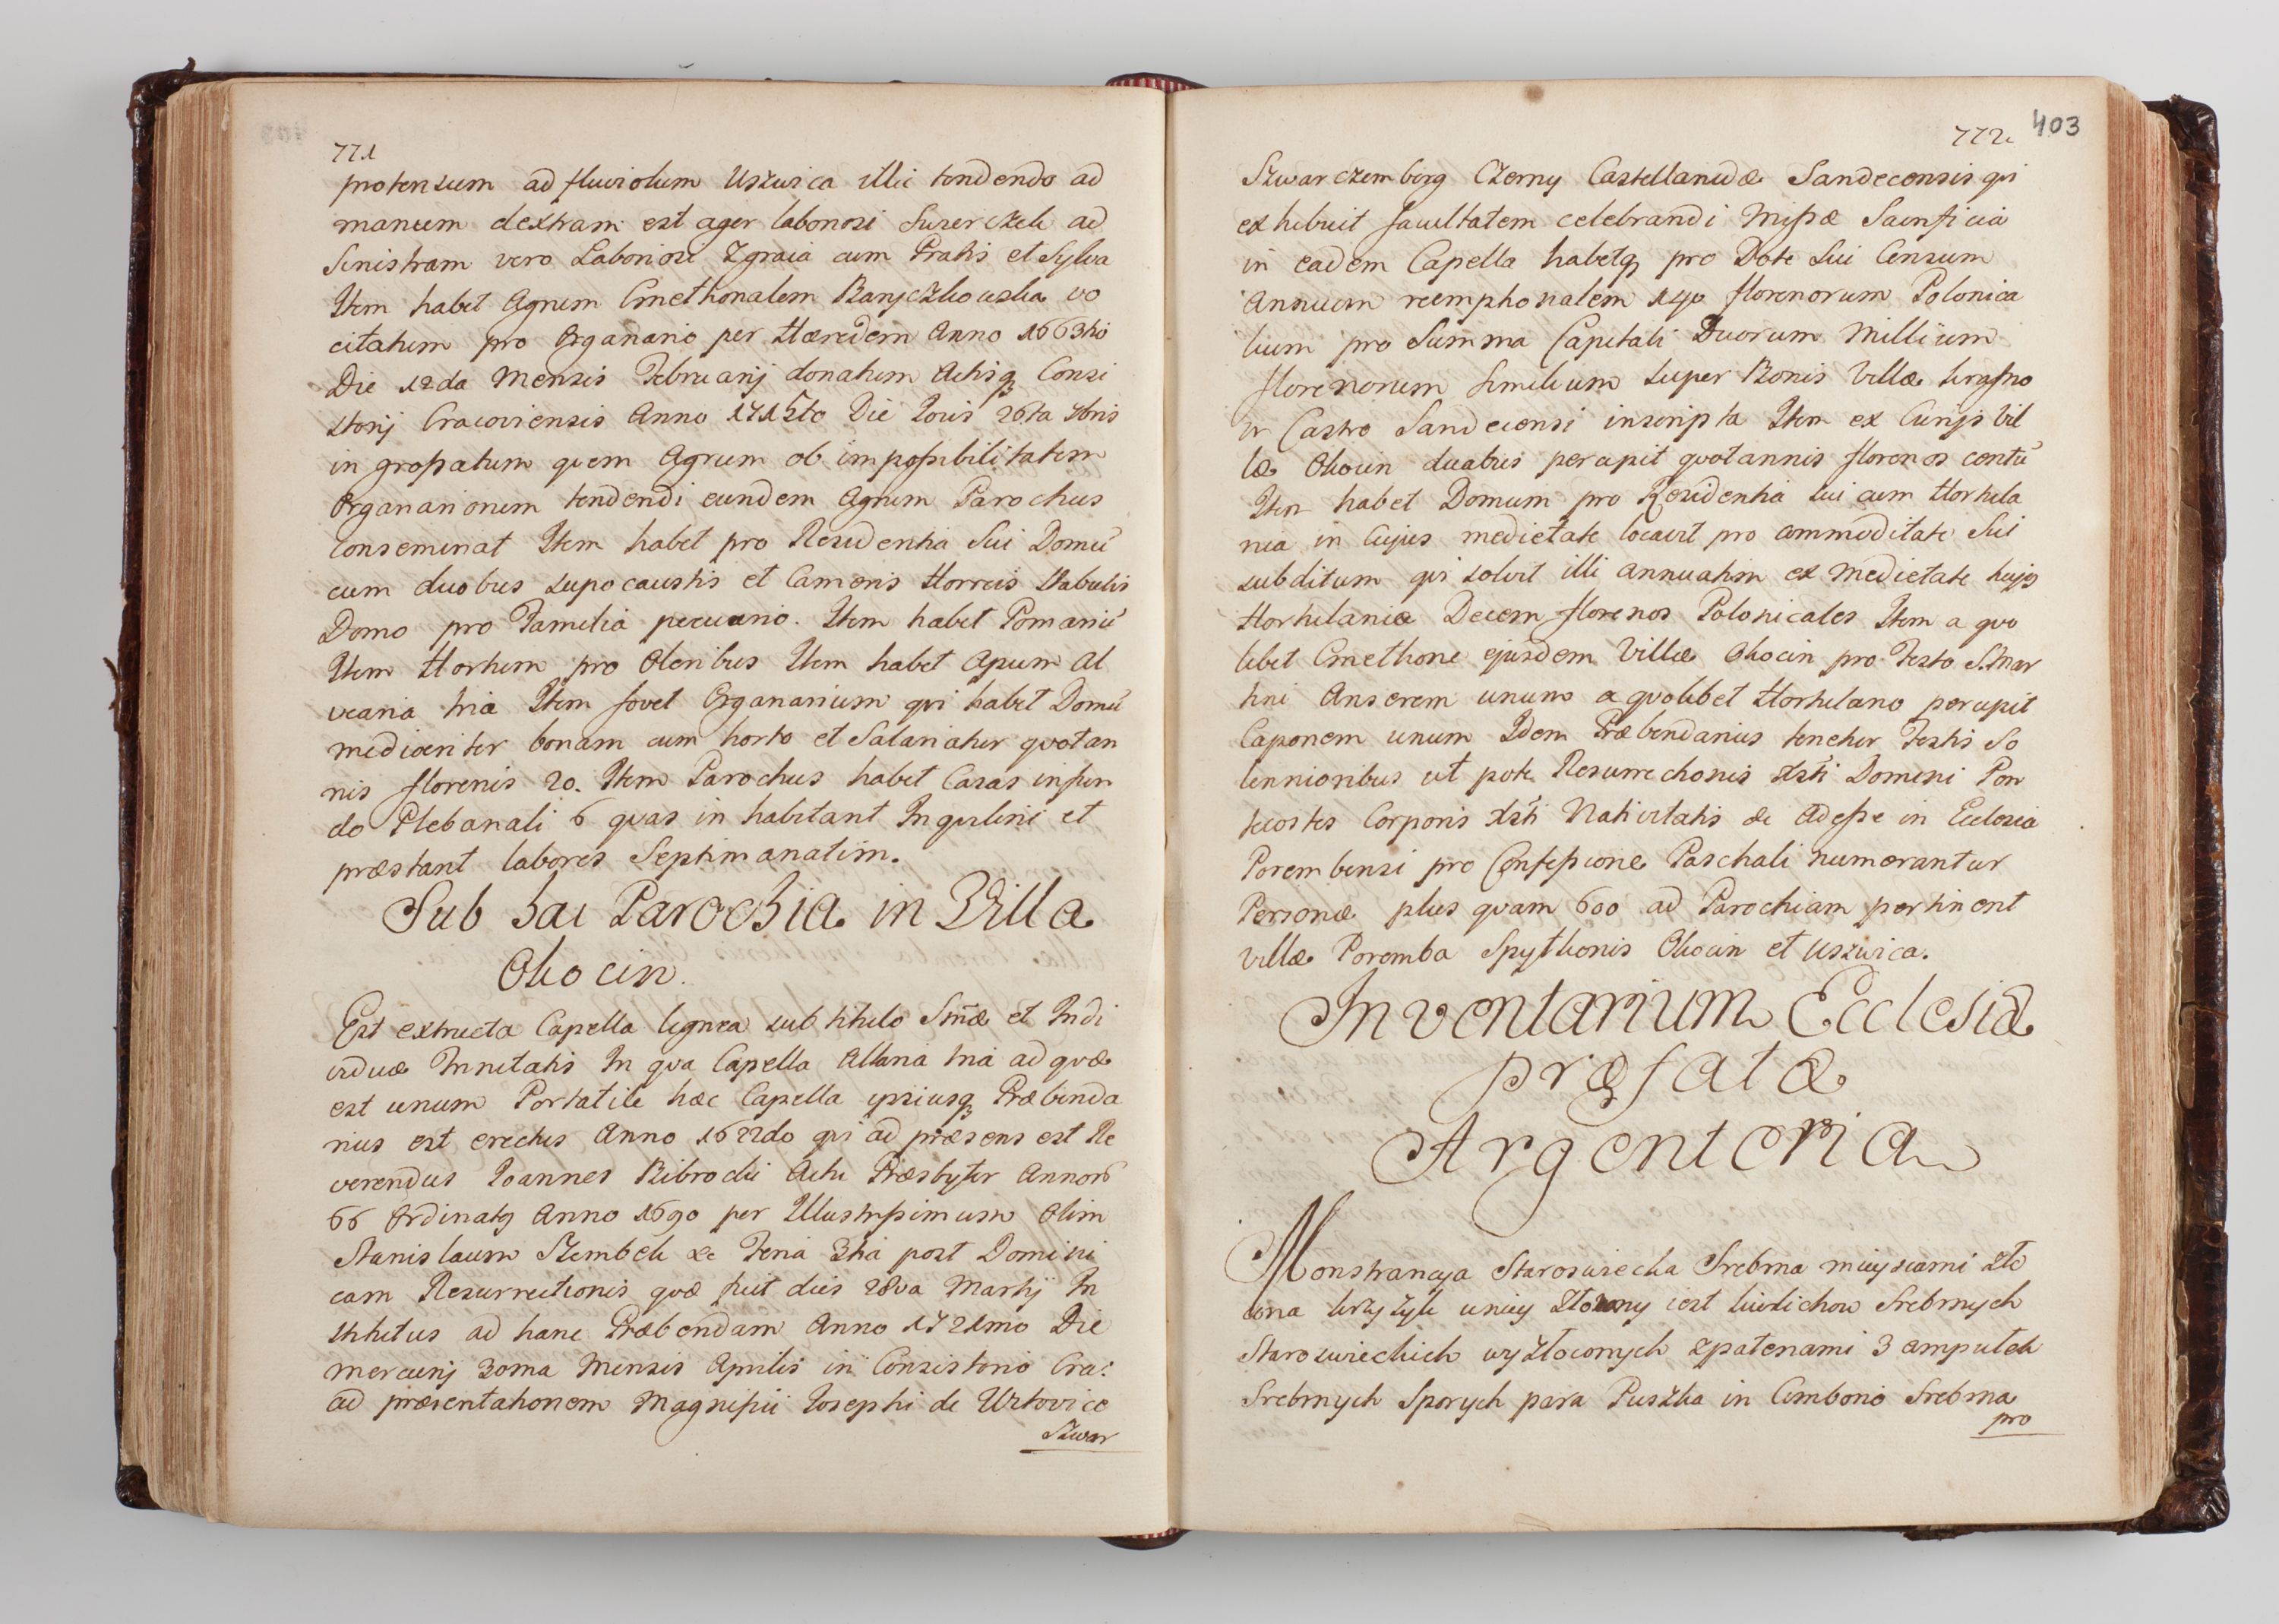 771
protensum ad fluviolum Uszwica illic tendendo ad
manum dextram est ager laboriosi Swierczek ad
Sinistram vero Laboriosi Zgraia cum Pratis et Sylva
Item habet Agrum Cmethonalem Banyczkowska vo
citatum pro Organario per Hæredem Anno 1663tio
Die 12da Mensis Februarij donatum Actisq Consi
storij Cracoviensis Anno 1715to Die Jovis 26ta 7bris
in grossatum quem Agrum ob impossibilitatem
Organariorum tendendi eundem Agrum Parochus
conseminat Item habet pro Residentia Sui Domū
cum duobus supocaustis et Cameris Horreis Stabulis
Domo pro Familia pecuario. Item habet Pomariū
Item Hortum pro Oleribus Item habet Apum Al
vearia tria Item fovet Organarium qui habet Domū
mediocriter bonam cum horto et Salariatur quotan
nis florenis 20. Item Parochus habet Casas in fun
do Plebanali 6 quas in habitant Inquilini et
præstant labores Septimanatim.
Sub hac Parochia in Villa
Okocin.
Est extructa Capella lignea sub titulo Smæ et Indi
viduæ Trinitatis In qua Capella Altaria tria ad quæ
est unum Portatile hæc Capella ipsiusq Præbenda
rius est erectus Anno 1622do qui ad præsens est Re
verendus Joannes Bibrocki Actu Præsbyter Annorū
66 Ordinatq Anno 1690 per Illustrissimum Olim
Stanislaum Szembek &c Feria 3tia post Domini
cam Resurrectionis quæ fuit dies 28va Martij In
stitutus ad hanc Præbendam Anno 1721mo Die
Mercurij 30ma Mensis Aprilis in Consistorio Cra:
ad præsentationem Magnifici Josephi de Witovice
Szwar
772. 403
Szwarczemberg Czerny Castellanidæ Sandecensis qui
exhibuit facultatem celebrandi Missæ Sacrificia
in eadem Capella habetq pro Dote Sui Censum
Annuum reemptionalem 140 florenorum Polonica
lium pro Summa Capitali Duorum Millium
florenorum similium super Bonis Villæ
in Castro Sandecensi inscripta Item ex Curijs Vil
læ Okocin duabus percipit quotannis florenos centū
Item habet Domum pro Residentia sui cum Hortula
nia in Cujus medietate locavit pro commoditate Sui
subditum qui solvit illi annuatim ex Medietate hujq
Hortulaniæ Decem florenos Polonicales Item a quo
libet Cmethone ejusdem Villæ Okocin pro Festo S. Mar
tini Anserem unum a quolibet Hortulano percipit
Caponem unum Idem Præbendarius tenetur Festis So
lennioribus ut pote Resurrectionis Xsti Domini Pen
tecostes Corporis Xsti Nativitatis &c Adesse in Ecclesia
Porembensi pro Confessione Paschali numerantur
Personæ plus quam 600 ad Parochiam pertinent
villæ Poremba Spythonis Okocin et Uszwica.
Inventarium Ecclesiæ
præfatæ
Argenteria
Monstrancya Staroswiecka Srebrna mieyscami zło
cona krzyżyk uniey złocony iest kielichow Srebrnych
Staroswieckich wyzłoconych zpatenami 3 ampułek
Srebrnych Sporych para Puszka in Cimborio Srebrna
pro